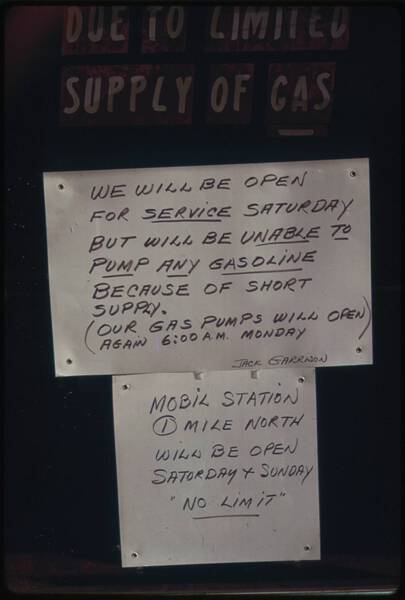 DUE TO LIMITED
SUPPLY OF GAS
WE WILL BE OPEN
FOR SERVICE SATURDAY
BUT WILL BE UNABLE TO
PUMP ANY GASOLINE
BECAUSE OF SHORT
SUPPLY.
(OUR GAS PUMPS WILL OPEN
AGAIN 6:00 A.M. MONDAY)
JACK GARRISON
MOBIL STATION
① MILE NORTH
WILL BE OPEN
SATURDAY & SUNDAY
"NO LIMIT"